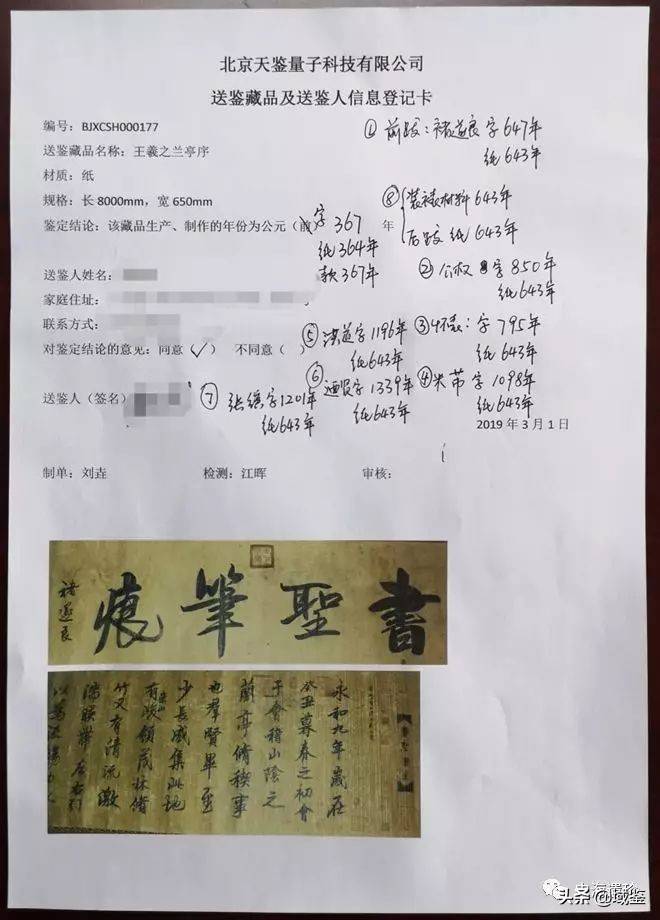 北京天鉴量子科技有限公司
送鉴藏品及送鉴人信息登记卡
编号：BJXCSH000177
送鉴藏品名称：王羲之兰亭序
材质：纸
规格：长 8000mm，宽 650mm
鉴定结论：该藏品生产、制作的年份为公元（前） 年
字 367
纸 364年
款 367年
送鉴人姓名：
家庭住址：
联系方式：
对鉴定结论的意见：同意（✓） 不同意（ ）
送鉴人（签名）
① 前跋：褚遂良 字 647年
纸 643年
⑧ 装裱材料 643年
后跋 纸 643年
② 公权 字 850年
纸 643年
③ 怀素：字 795年
纸 643年
④ 米芾 字 1098年
纸 643年
⑤ 字 1196年
纸 643年
⑥ 字 1339年
纸 643年
⑦ 字 1201年
纸 643年
2019 年 3 月 1 日
制单：刘垚 检测：江晖 审核：
書聖筆痕
褚遂良
永和九年歲在
癸丑暮春之初會
于會稽山陰之
蘭亭脩稧事
也羣賢畢至
少長咸集此地
有崇山
峻領茂林脩
竹又有清流激
湍暎帶左右引
以為
头条@域鉴